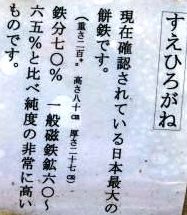 すえひろがね
現在確認されている日本最大の
餅鉄です。
(重さ二百㌔ 高さ八十㌢ 厚さ二十七㌢)
鉄分七〇% 一般磁鉄鉱六〇～
六五%と比べ純度の非常に高い
ものです。